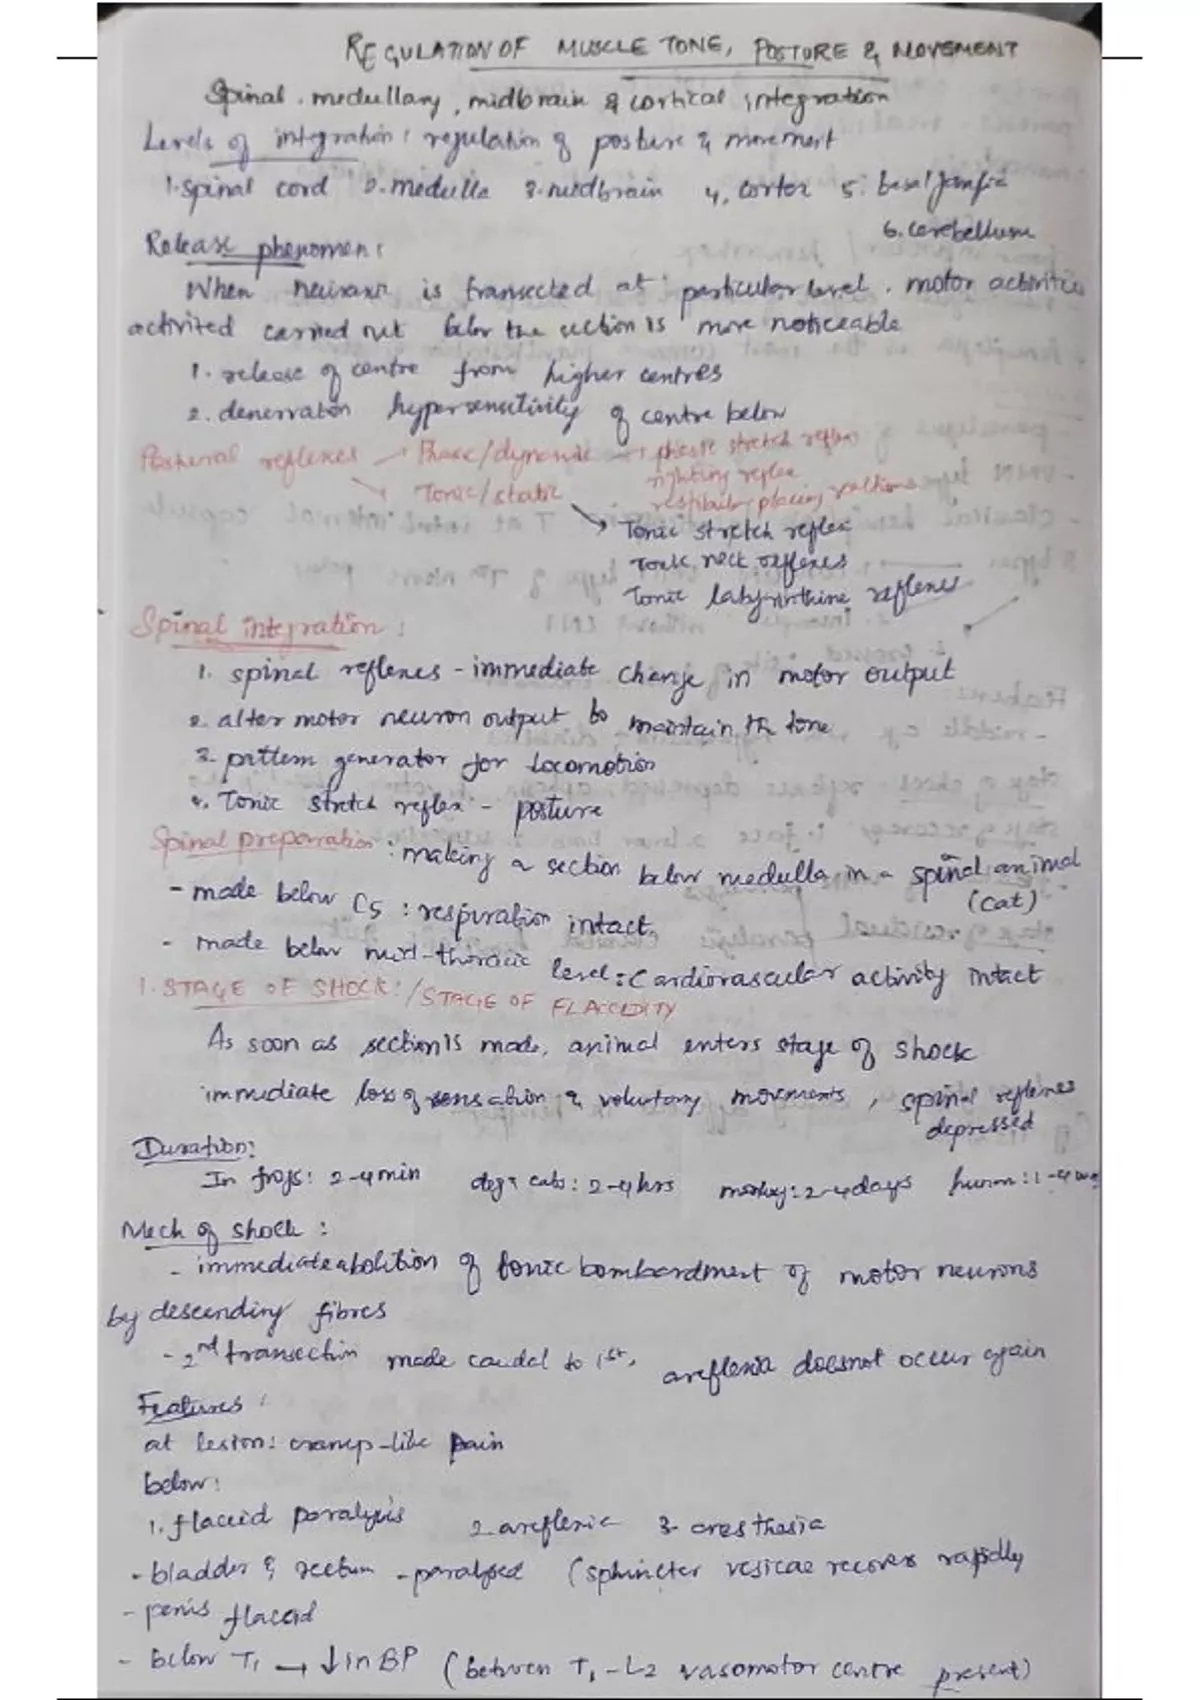 REGULATION OF MUSCLE TONE, POSTURE & MOVEMENT
Spinal, medullary, midbrain & cortical integration
Levels of integration: regulation of posture & movement
1. spinal cord 2. medulla 3. midbrain 4. cortex 5. basal ganglia
6. cerebellum
Release phenomen:
When neuraxis is transected at particular level, motor activities
activited carried out below the section is more noticeable
1. release of centre from higher centres
2. denervation hypersensitivity of centre below
Postural reflexes → Phasic/dynamic → phasic stretch reflex
righting reflex
placing reactions
→ Tonic/static
→ Tonic stretch reflex
Tonic neck reflexes
Tonic labyrinthine reflexes
Spinal integration:
1. spinal reflexes - immediate change in motor output
2. alter motor neuron output to maintain the tone
3. pattern generator for locomotion
4. Tonic stretch reflex - posture
Spinal preparation: making a section below medulla in a spinal animal
(cat)
- made below C5 : respiration intact
- made below mid-thoracic level : Cardiovascular activity intact
1. STAGE OF SHOCK:/STAGE OF FLACCIDITY
As soon as section is made, animal enters stage of shock
immediate loss of sensation & voluntary movements, spinal reflexes
depressed
Duration:
In frogs: 2-4min dog & cats: 2-4hrs monkey: 2-4days human: 1-4
Mech of shock:
- immediate abolition of tonic bombardment of motor neurons
by descending fibres
- 2nd transection made caudal to 1st, areflexia doesnot occur again
Features:
at lesion: cramp-like pain
below:
1. flaccid paralysis 2. areflexic 3. anesthesia
- bladder & rectum - paralysed (sphincter vesicae recovers rapidly
- penis flaccid
- below T1 → ↓ in BP (between T1-L2 vasomotor centre present)